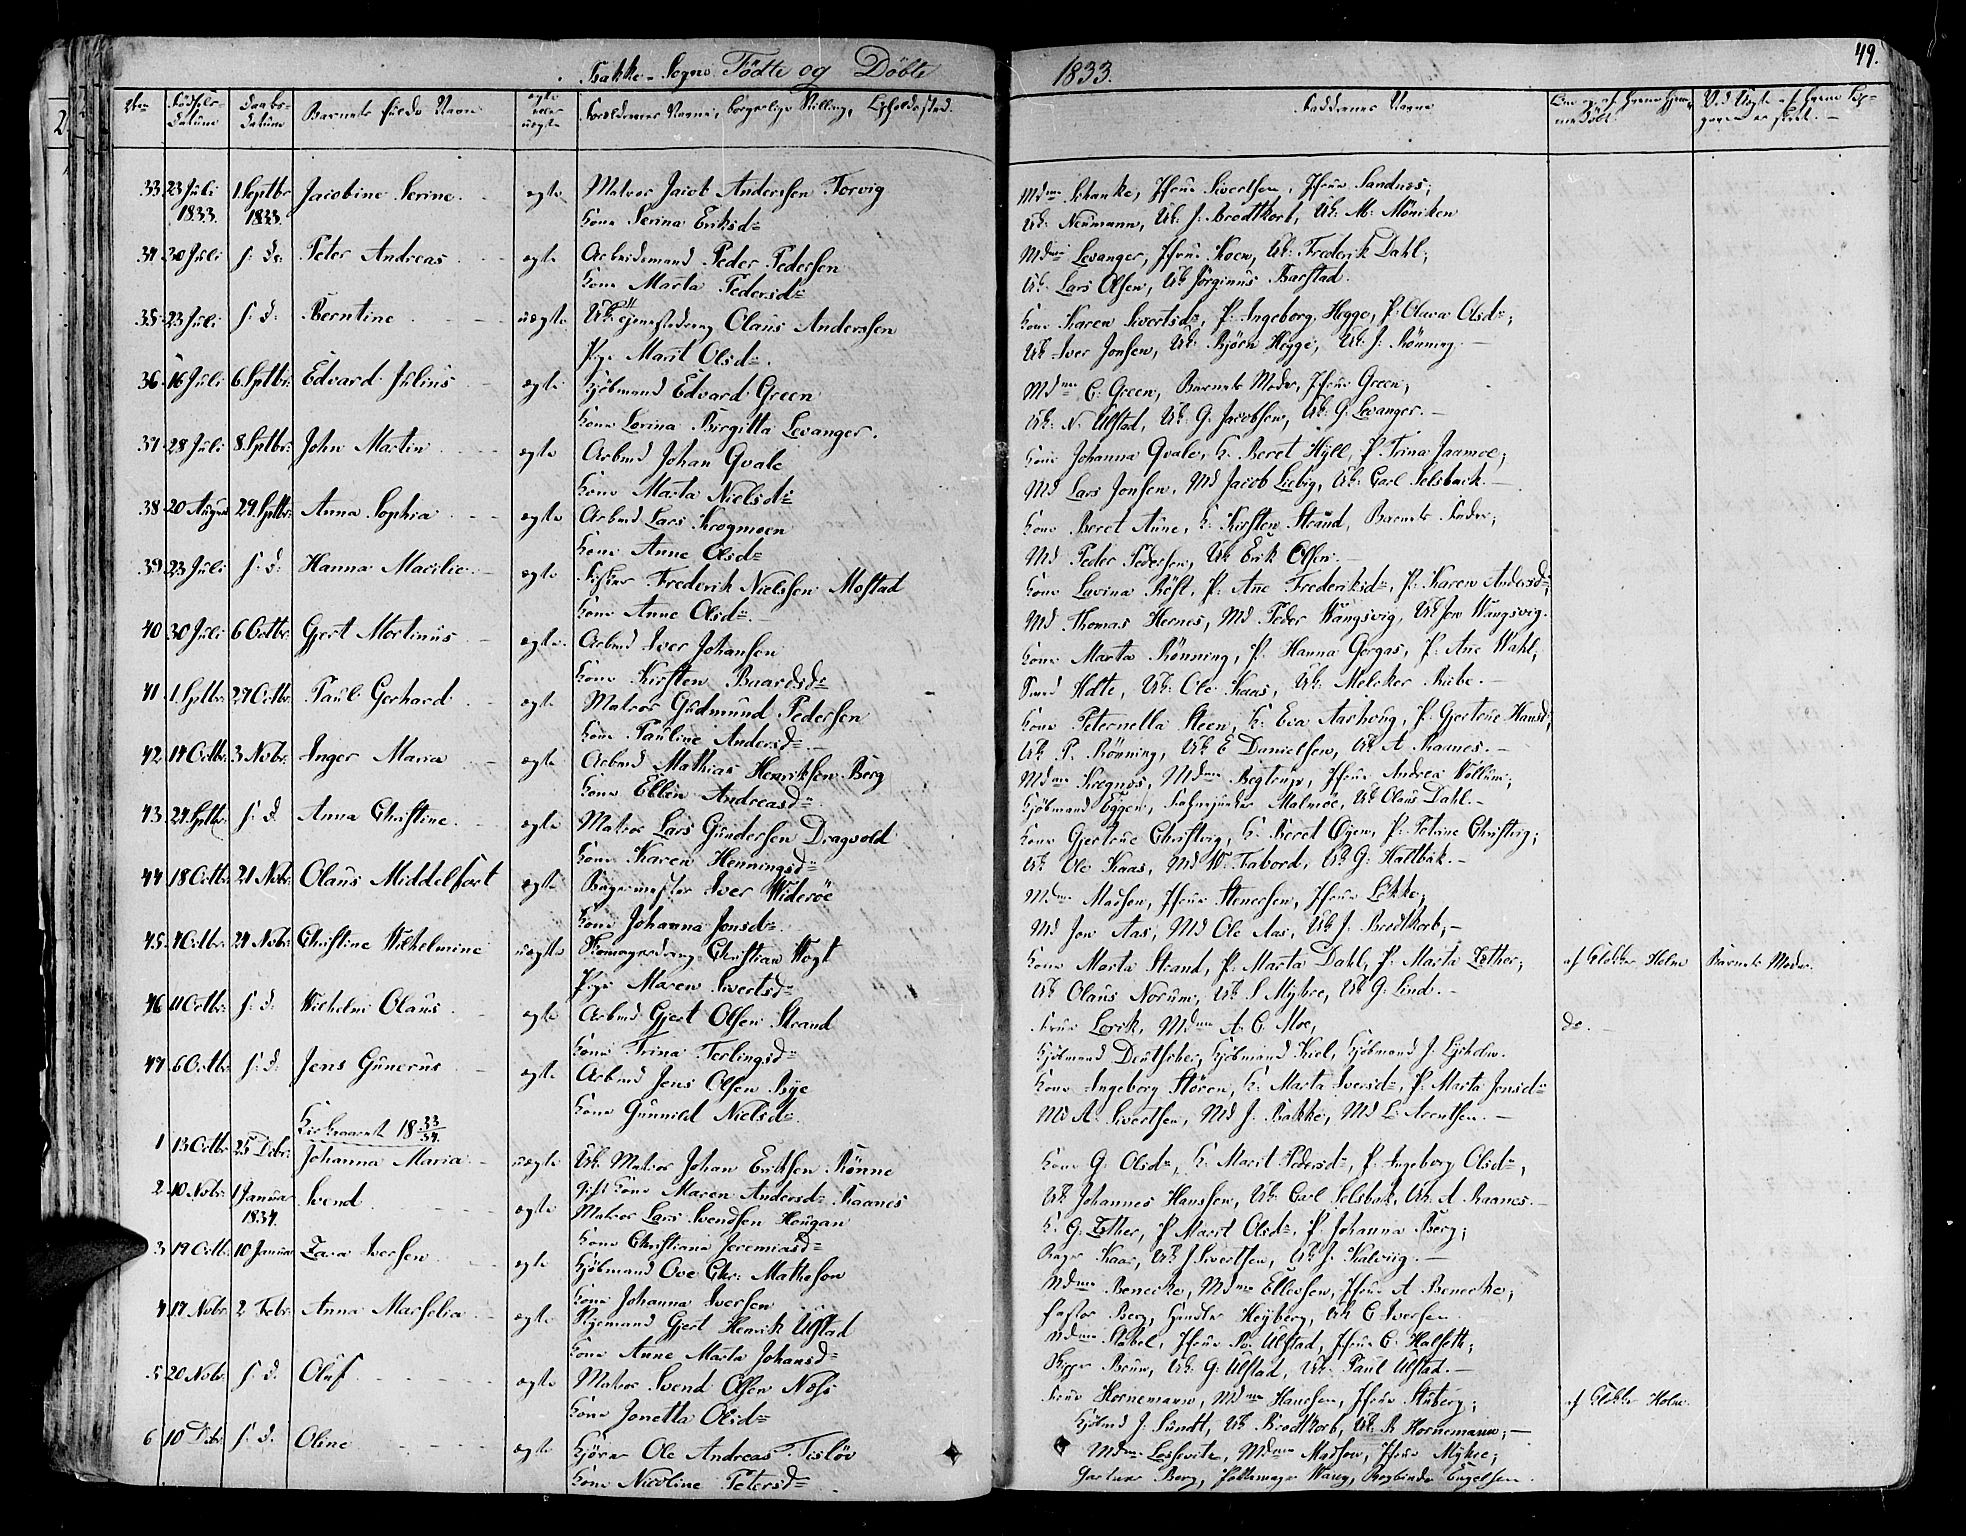 Bakke-Sogns Födte og Döbte
1833.
49.
Födsels-Datum
Daabs-Datum
Barnets fulde Navn
ægte eller uægte
Forældrenes Navne, borgerlige Stilling, Opholdssted.
Faddernes Navne
33 23 Juli 1833. 1. Septbr 1833. Jacobine Serine ægte Matros Jacob Anderssen Torvig
Kone Serina Eriksd=
Mdme Schanke, Jfrue Sivertsen, Jfrue Sandnes;
Uk: Neumann, Uk: J. Brodtkorb, Uk: M: Möniken
34 30 Juli s: D: Peter Andreas ægte Arbeidsmand Peder Pedersen
Kone Marta Pedersd=
Mdme Levanger, Jfrue Koen, Uk: Frederik Dahl;
Uk: Lars Olsen, Uk Jörginus Barstad.
35 23 Juli s: d: Berntine uægte Claus Anderssen
Pige Marit Olsd=
Kone Karen Sivertsd=, P. Ingeborg Hegge, P: Olava Olsd=;
Uk Iver Jonsen, Uk: Björn Hegge, Uk: J. Rönning.
36 16 Juli 6. Sptbr: Edvard Julius ægte Kjöbmand Edvard Green
Kone Lorina Birgitta Levanger.
Mdme C: Green, Barnets Moder, Jfrue Green,
Uk: N. Ulstad, Uk: G. Jacobsen, Uk: G. Levanger.
37 28 Juli 8. Sptbr: John Martin ægte Arbmd Johan Qvale
Kone Marta Nielsd=
Kone Johanna Qvale, K. Beret Hyll, P. Trina Jaamoe,
Md Lars Jonsen, Md Jacob Liebig, Uk: Carl Selsbak.
38 20 August 29. Sptbr: Anna Sophia ægte Arbmd Lars Krogmoen
Kone Anne Olsd=
Kone Beret Aune, K. Kirsten Strand, Barnets Fader;
Md Peder Pedersen, Uk Erik Olsen.
39 23 Juli s: d: Hanna Macilie ægte Fisker Frederik Nielssen Mostad
Kone Anne Olsd=
Kone Lavina Röst, P. Ane Frederiksd=, P. Karen Andersd=;
Md Thomas Hernes, Md Peder Wangsvig, Uk Jon Wangsvig.
40 30 Juli 6 Octbr: Gjert Mortinus ægte Arbmd Iver Johansen
Kone Kirsten Baardsd=
Kone Marta Rönning, P. Hanna Gorgas, P. Ane Wahl;
Smed Holte, Uk: Ole Kaas, Uk: Melcker Bube.
41 1. Sptbr 27 Octbr: Paul Gerhard ægte Matros Gudmund Pedersen
Kone Pauline Andersd=
Kone Peternella Steen, K: Eva Aarhoug, P. Gjertrue Hansd;
Uk P. Rönning, Uk E Danielsen, Uk A Raanes.
42 14 Octbr: 3 Nvbr: Inger Maria ægte Arbmd Mathias Henriksen Berg
Kone Ellen Andreasd=
Mdme Krognes, Mdme Begtrup, Jfrue Andrea Wollum;
Kjöbmand Eggen, Fahnejunker Malmöe, Uk Claus Dahl.
43 24 Sptbr s: d: Anna Christine ægte Matros Lars Gundersen Dragvold
Kone Karen Henningsd=
Kone Gjertrue Christvig, K. Beret Öyen, P: Petrine Christvig;
Uk Ole Kaas, Md W. Tabord, Uk G: Haltbak.
44 18 Octbr: 21 Nvbr: Olaus Middelfart ægte Bagermester Iver Wideröe
Kone Johanna Jonsd=
Mdme Madsen, Jfrue Stenersen, Jfrue Lökke;
Md Jon Aas, Md Ole Aas, Uk J. Brodtkorb,
45 4 Octbr: 24 Nvbr: Christine Wilhelmine uægte Skomagerdreng Christian Wogt
Pige Maren Sivertsd=
Kone Marta Strand, P. Marta Dahl, P. Marta Lother;
Uk Olaus Norum, Uk S Myhre, Uk G: Lind.
af Klokker Holm Barnets Moder.
46 11 Octbr: s: d: Wilhelm Olaus ægte Arbmd Gjert Olsen Strand
Kone Trina Terlingsd=
Frue Lorck, Mdme A: C. Moe,
Kjöbmand Deutscher, Kjöbmand Kiel, Kjöbmand J. Lysholm.
do.
47 6 Octbr: s: d: Jens Gunerus ægte Arbmd Jens Olsen Bye
Kone Gunnild Nielsd=
Kone Ingeborg Stören, K: Marta Iversd=, P. Marta Jonsd=
Md A. Sivertsen, Md J. Bakke, Md L: Arentsen.
Kirkeaaret 18 33/34.
1 13 Octbr 25 Dcbr: Johanna Maria uægte Uk: Matros Johan Eriksen Rönne
gift Kone Maren Andersd= Raanes
Kone G. Olsd=, K. Marit Pedersd=, P. Ingeborg Olsd=,
Uk Johannes Hanssen, Uk: Carl Selsbak, Uk: A Raanes.
2 10 Nvbr: 1 Januar 1834. Svend ægte Matros Lars Svendsen Hougan
Kone Christiana Jeremiasd=
K. G. Lother, P Marit Olsd=, P. Johanna Berg;
Bager Kaas, Uk J Sivertsen, Uk J. Kalvig.
3 19 Octbr: 10 Januar Zara Iversen ægte Kjöbmand Ove Chr: Matheson
Kone Johanna Iversen
Mdme Benecke, Mdme Ellevsen, Jfrue A Benecke;
Pastor Berg, Handler Heyberg, Uk C Iversen
4 17 Nvbr: 2 Febr: Anna Marselia ægte Gjert Henrik Ulstad
Kone Anne Marta Johansd=
Mdme Nobel, Jfrue Ulstad, Jfrue C. Halseth;
Skipper Brun, Uk: G: Ulstad, Uk. Paul Ulstad.
5 20 Nvbr: s: d. Oluf ægte Matros Svend Olsen Næss
Kone Jonetta Olsd=
Frue Hornemann, Mdme Hanssen, Jfrue Stuberg;
Kjöbmd J. Sundt, Uk Brodtkorb, Uk: R Hornemann;
af Klokker Holm.
6 10 Dcbr s: d. Oline ægte Ole Andreas Tislöv
Kone Nicoline Petersd=
Mdme Loshwitz, Mdme Madsen, Jfrue Myhre;
Gartner Berg, Pottemager Waug, Bogbinder Engelsen.